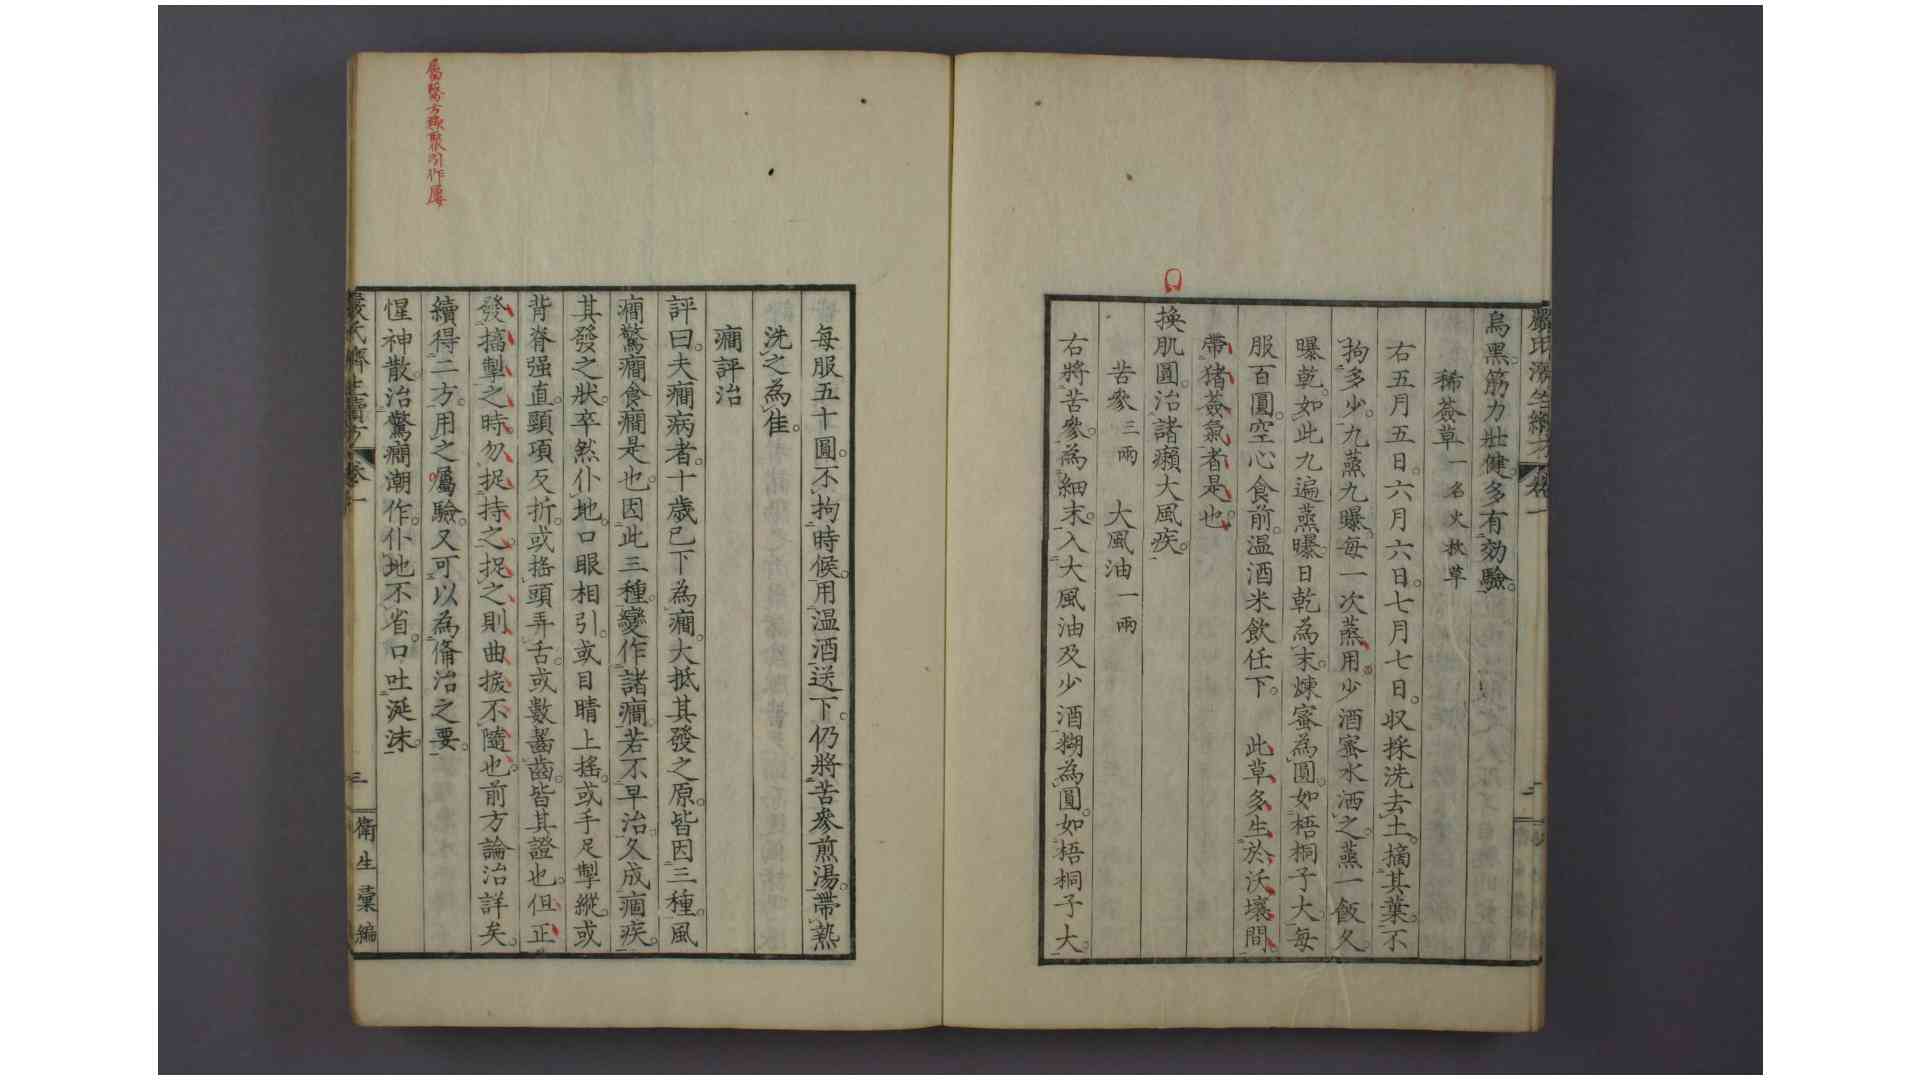 烏黑筋力壯健多有効驗。
稀薟草一名火杴草
右五月五日。六月六日。七月七日。収採洗去土。摘其葉。不
拘多少。九蒸九曝。每一次蒸用。少酒蜜水洒之。蒸一飯久。
曝乾。如此九遍蒸曝。日乾為末。煉蜜為圓。如梧桐子大。每
服百圓。空心食前。温酒米飲任下。 此草多生於沃壤間。
帶猪薟氣者是也。
換肌圓。治諸癩大風疾。
苦參三兩 大風油一兩
右將苦參。為細末。入大風油及少酒糊為圓。如梧桐子大。
每服五十圓。不拘時候。用温酒送下。仍將苦參煎湯。帶熱
洗之為佳。
癎評治
評曰。夫癎病者。十歳已下為癎。大抵其發之原。皆因三種。風
癎驚癎食癎是也。因此三種。變作諸癎。若不早治。久成痼疾。
其發之狀。卒然仆地。口眼相引。或目睛上搖。或手足掣縱。或
背脊强直。頸項反折。或搖頭弄舌。或數齧齒。皆其證也。但正
發搐掣之時。勿捉持之。捉之則曲拔不隨也。前方論治詳矣。
續得二方。用之屬驗。又可以為脩治之要。
惺神散。治驚癎潮作。仆地不省。口吐涎沫。
嚴氏濟生續方 卷一
三
衛生彙編
屬醫方類聚引作屢